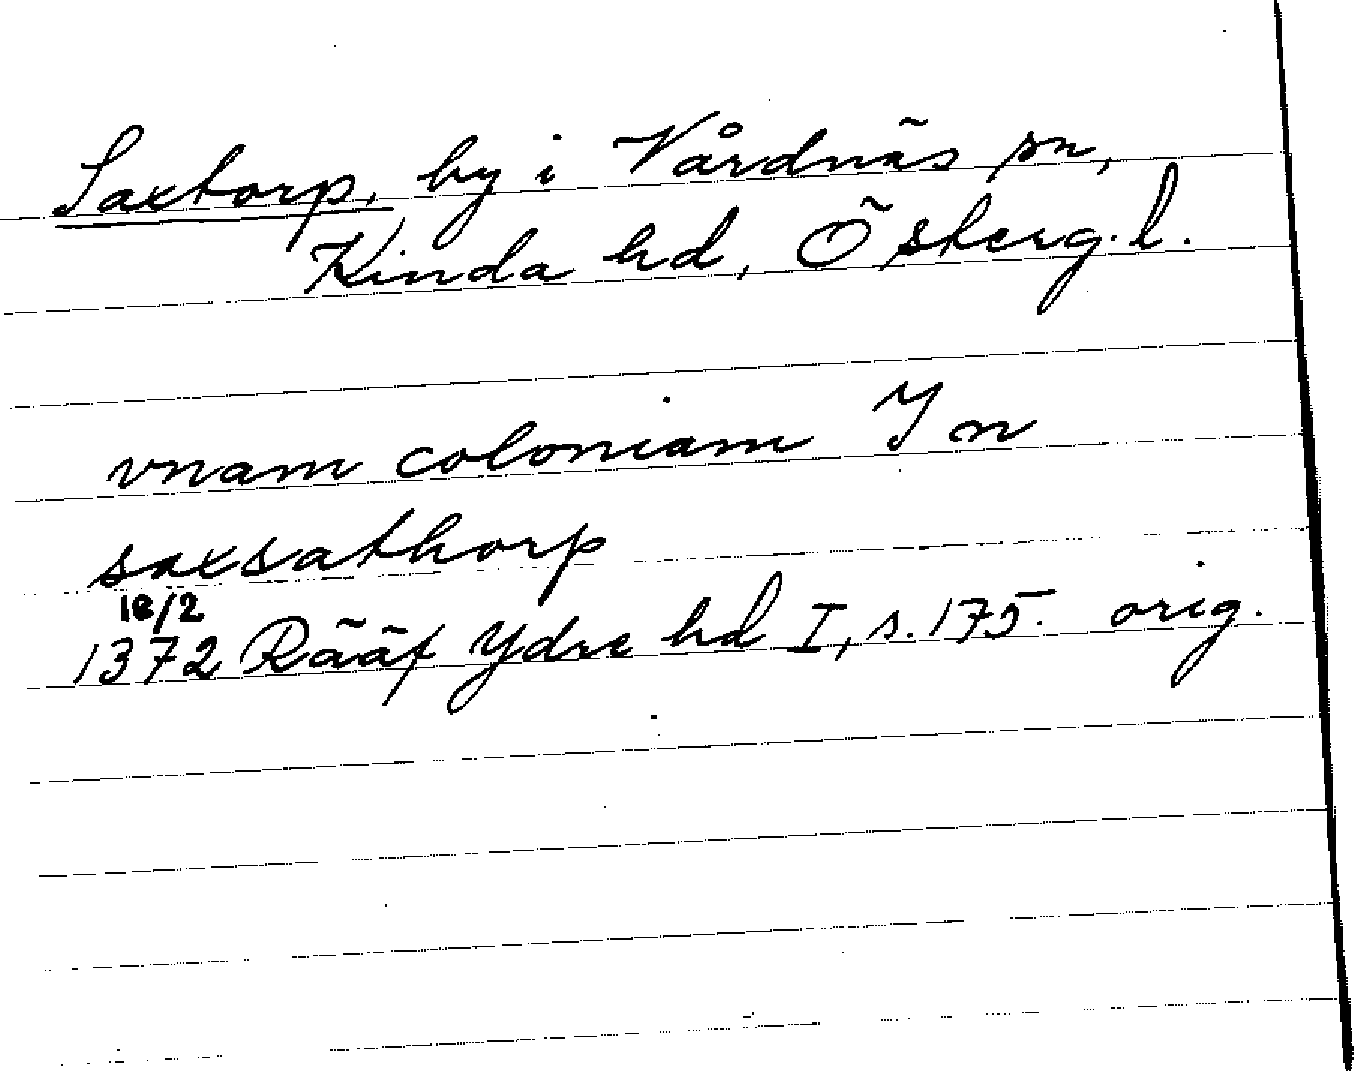 Saxtorp, by i Vårdnäs sn,
Kinda hd, Österg.l.
vnam coloniam Jn
saxsathorp
18/2
1372 Rääf Ydre hd I, s. 175. orig.